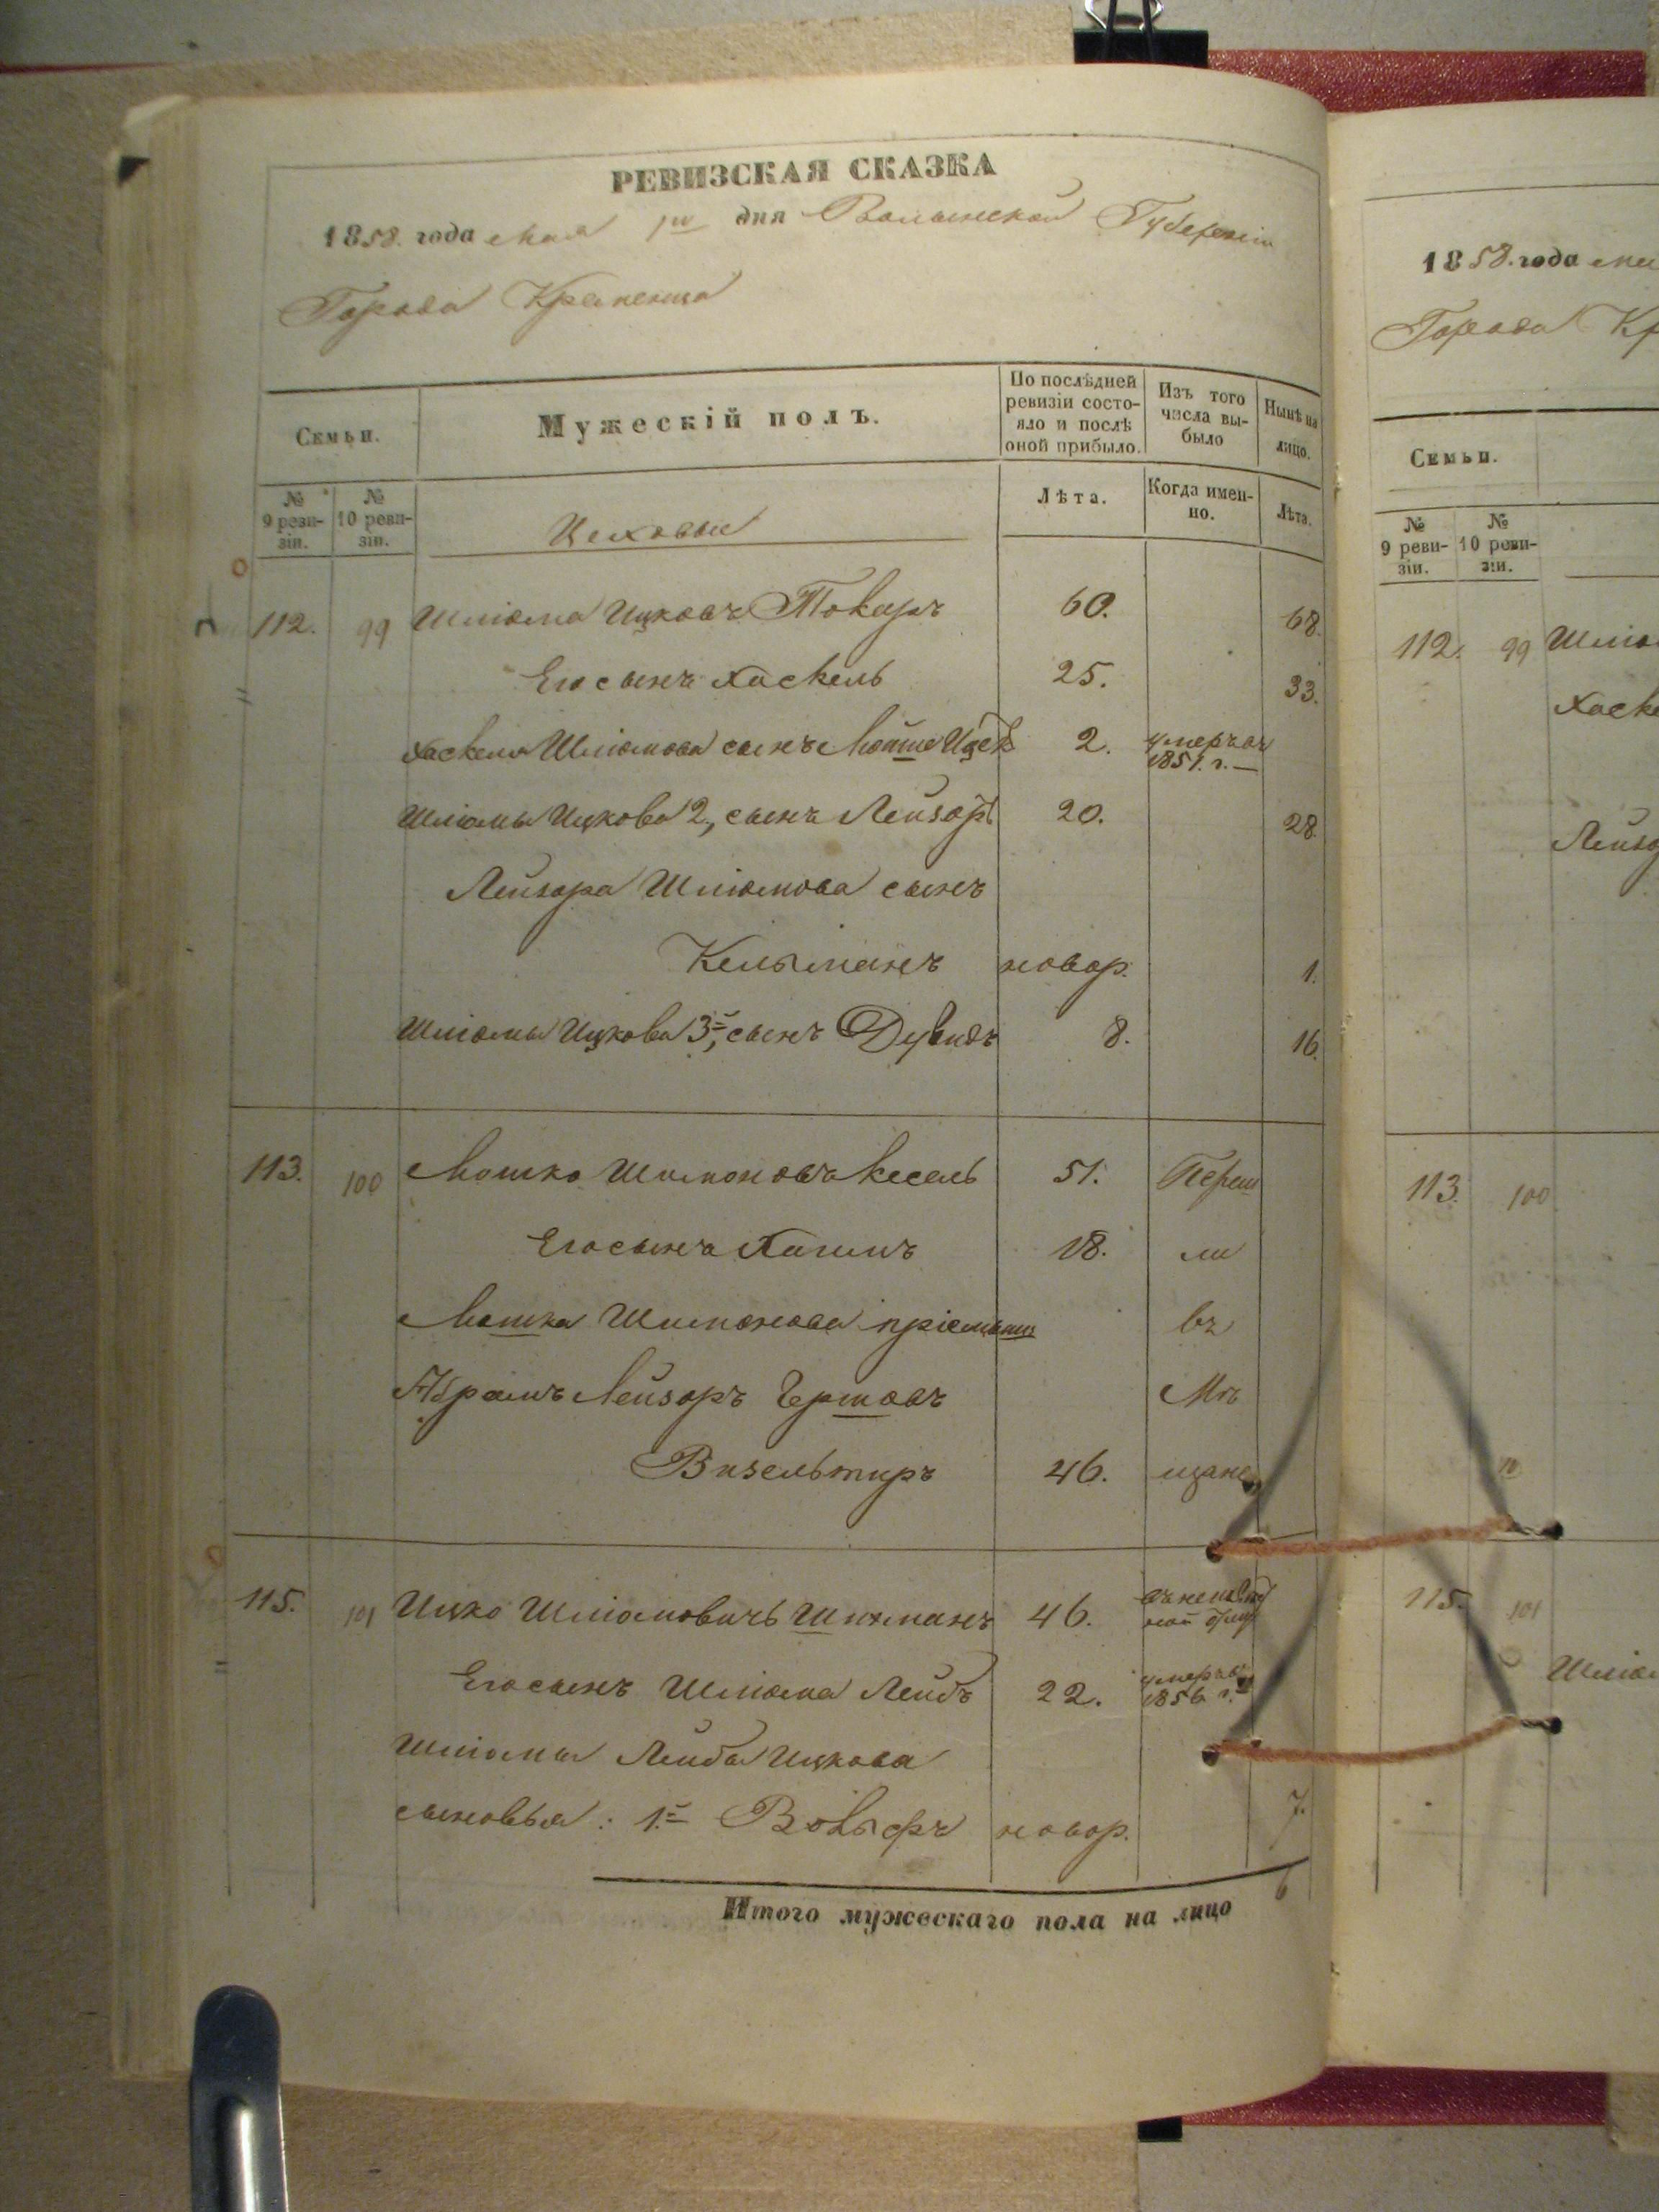 РЕВИЗСКАЯ СКАЗКА
1858. года мая 1го дня Волынской Губерніи
Города Кременца
Семьи.
Мужескій полъ.
По послѣдней ревизіи состояло и послѣ оной прибыло.
Изъ того числа выбыло
Нынѣ на лицо.
№ 9 ревизіи.
№ 10 ревизіи.
Цеховые
Лѣта.
Когда именно.
Лѣта.
112. 99 Шліома Ицковъ Токарь 60. 68.
Его сынъ Хаскель 25. 33.
Хаскеля Шліомова сынъ Мошко Ицек 2. умеръ въ 1851. г.
Шліомы Ицкова 2, сынъ Лейзоръ 20. 28.
Лейзора Шліомова сынъ
Кельманъ новор. 1.
Шліомы Ицкова 3й, сынъ Дувидъ 8. 16.
113. 100 Мошко Шимоновъ Кесель 51. Переш
Его сынъ Хаимъ 18. ли
Мошка Шимонова пріемышъ въ
Абрамъ Лейзоръ Гершовъ Мѣ
Визельтиръ 46. щане
115. 101 Ицко Шліомовичъ Шихманъ 46.
Его сынъ Шліома Лейбъ 22. умеръ въ 1856 г.
Шліомы Лейбы Ицкова
сыновья: 1й Вольфъ новор. 7.
6
Итого мужескаго пола на лицо
1858. года
Города Кр
Семьи.
№ 9 ревизіи.
№ 10 ревизіи.
112. 99 Шліо
Хаске
Лейзо
113. 100
115. 101
Шліо